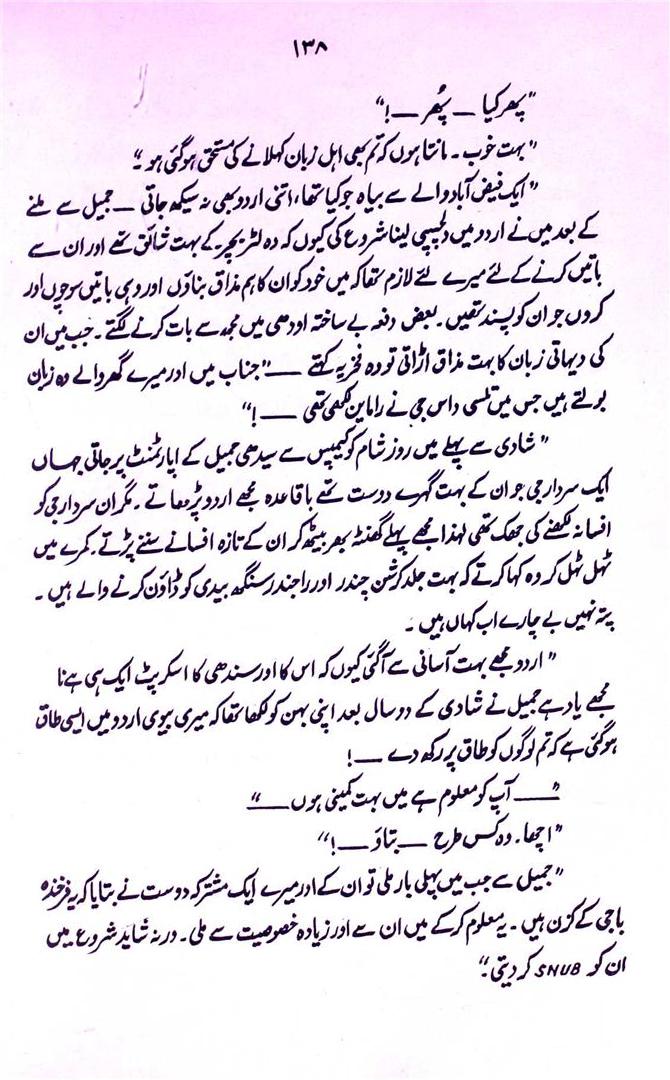 ۱۳۸
"پھر کیا — پُھر —!"
"بہت خوب۔ مانتا ہوں کہ تم بھی اہل زبان کہلانے کی مستحق ہو گئی ہو۔"
"ایک فیض آباد والے سے بیاہ جو کیا تھا، اتنی اردو بھی نہ سیکھ جاتی — جمیل سے ملنے
کے بعد میں نے اردو میں دلچسپی لینا شروع کی کیوں کہ وہ لٹریچر کے بہت شائق تھے اور ان سے
باتیں کرنے کے لئے میرے لئے لازم تھا کہ میں خود کو ان کا ہم مذاق بناؤں اور وہی باتیں سوچوں اور
کروں جو ان کو پسند تھیں۔ بعض دفعہ بے ساختہ اودھی میں مجھ سے بات کرنے لگتے۔ جب میں ان
کی دیہاتی زبان کا بہت مذاق اڑاتی تو وہ فخریہ کہتے — "جناب میں اور میرے گھر والے وہ زبان
بولتے ہیں جس میں تلسی داس جی نے رامائن لکھی تھی —!"
"شادی سے پہلے میں روز شام کو کیمپس سے سیدھی جمیل کے اپارٹمنٹ پر جاتی جہاں
ایک سردار جی جو ان کے بہت گہرے دوست تھے باقاعدہ مجھے اردو پڑھاتے۔ مگر ان سردار جی کو
افسانہ لکھنے کی جھک تھی لہٰذا مجھے پہلے گھنٹہ بھر بیٹھ کر ان کے تازہ افسانے سننے پڑتے۔ کمرے میں
ٹہل ٹہل کر وہ کہا کرتے کہ بہت جلد کرشن چندر اور راجندر سنگھ بیدی کو ڈاؤن کرنے والے ہیں۔
پتہ نہیں بے چارے اب کہاں ہیں۔
"اردو مجھے بہت آسانی سے آگئی کیوں کہ اس کا اور سندھی کا اسکرپٹ ایک ہی ہے نا
مجھے یاد ہے جمیل نے شادی کے دو سال بعد اپنی بہن کو لکھا تھا کہ میری بیوی اردو میں ایسی طاق
ہو گئی ہے کہ تم لوگوں کو طاق پر رکھ دے —!
"— آپ کو معلوم ہے میں بہت کمینی ہوں —"
"اچھا۔ وہ کس طرح — بتاؤ —!"
"جمیل سے جب میں پہلی بار ملی تو ان کے اور میرے ایک مشترکہ دوست نے بتایا کہ یہ فرخندہ
باجی کے کزن ہیں۔ یہ معلوم کر کے میں ان سے اور زیادہ خصوصیت سے ملی۔ ورنہ شاید شروع میں
ان کو SNUB کر دیتی۔"